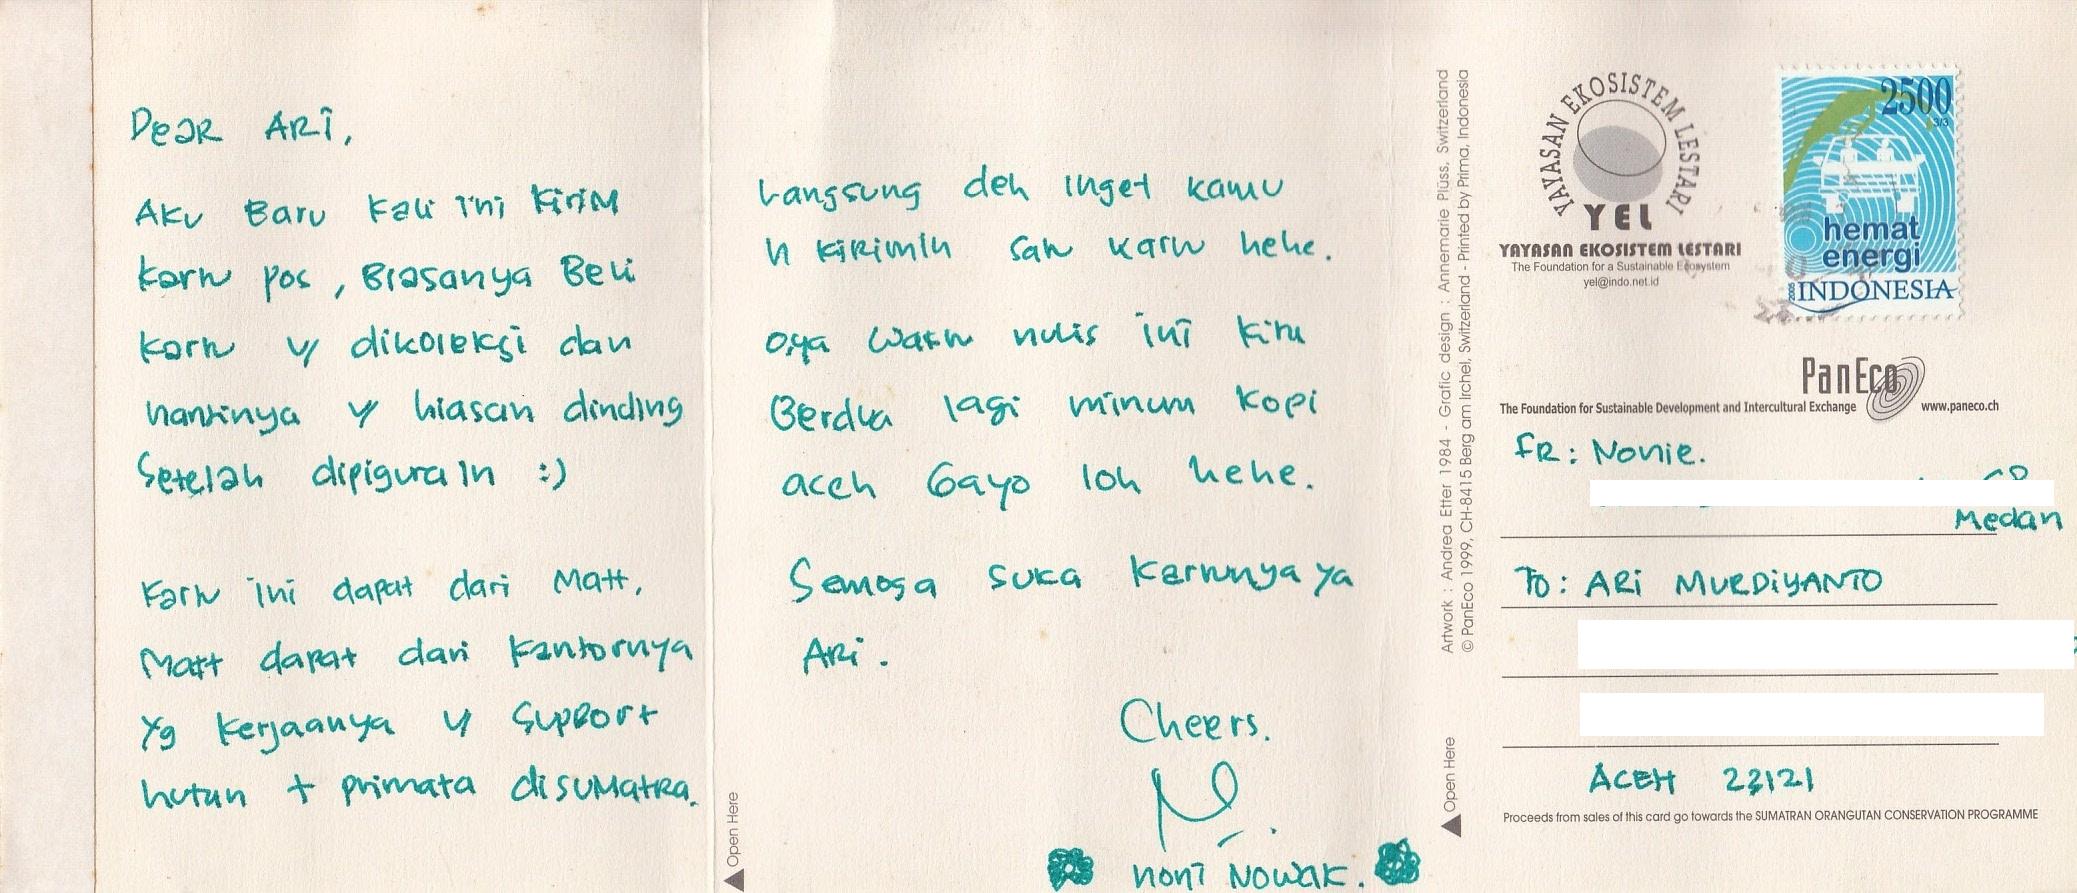 Dear ARi,
Aku Baru kali ini kirim
kartu pos, Biasanya Beli
kartu u/ dikoleksi dan
nantinya u/ hiasan dinding
Setelah dipigurain :)
Kartu ini dapat dari Matt,
Matt dapat dari kantornya
yg kerjaanya u/ support
hutan + primata di sumatra.
Langsung deh inget kamu
u kirimin sah kartu hehe.
o,ya waktu nulis ini kita
Berdua lagi minum kopi
aceh Gayo loh hehe.
Semoga suka kartunya ya
ARi.
Cheers.
noni NOWAK.
Open Here
Artwork : Andrea Etter 1984 - Grafic design : Annemarie Plüss, Switzerland
© PanEco 1999, CH-8415 Berg am Irchel, Switzerland - Printed by Prima, Indonesia
Open Here
YAYASAN EKOSISTEM LESTARI
YEL
YAYASAN EKOSISTEM LESTARI
The Foundation for a Sustainable Ecosystem
yel@indo.net.id
2500
3/3
hemat
energi
INDONESIA
PanEco
The Foundation for Sustainable Development and Intercultural Exchange www.paneco.ch
FR: Nonie.
Medan
To: ARi MURDiYANTO
ACEH 23121
Proceeds from sales of this card go towards the SUMATRAN ORANGUTAN CONSERVATION PROGRAMME